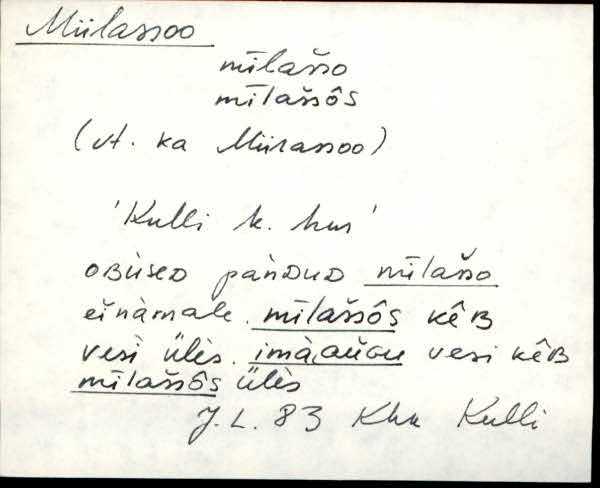 Miilassoo
mīlašso
mīlaššôs
(vt. ka Miirassoo)
'Kulli k. hus'
oʙùseᴅ pànᴅuᴅ mīlašso
einàmale. mīlaššôs kêʙ
vesì ülès. imà, auɢu vesi kêʙ
mīlaššôs ülès
J.L. 83 Khk Kulli